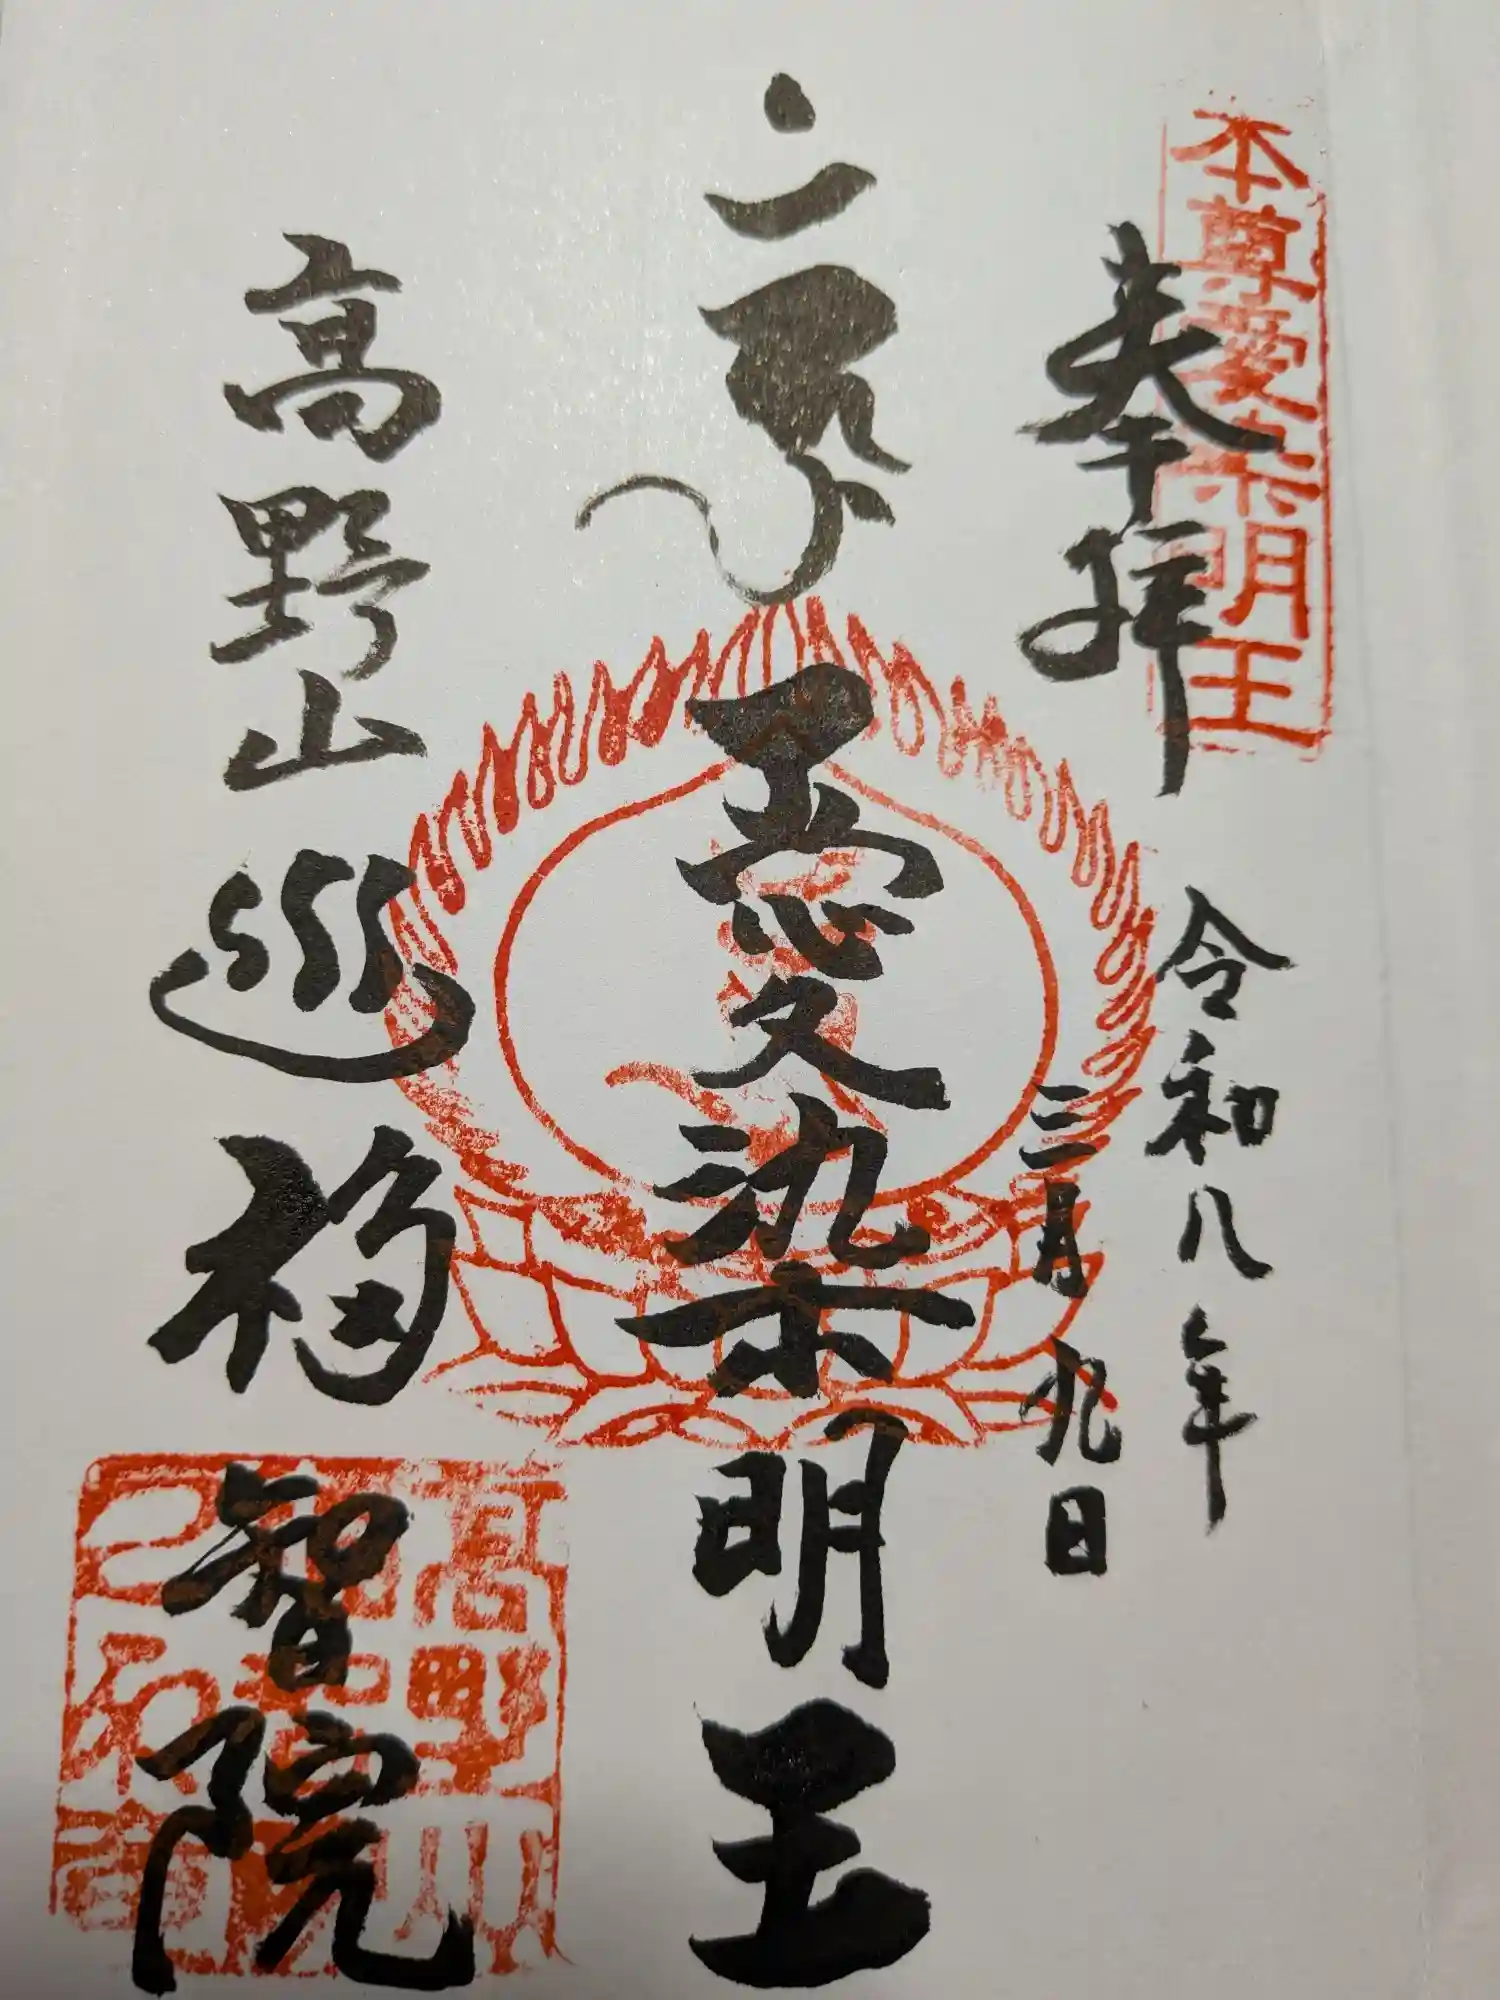 本尊愛染明王
奉拝
令和八年
三月九日
愛染明王
高野山
福智院
高野山